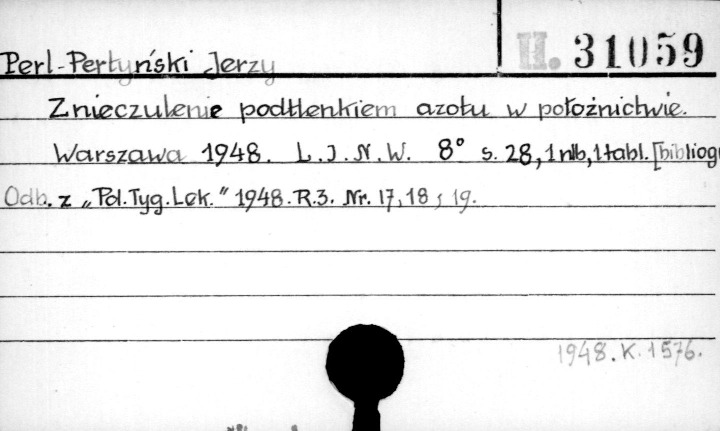 H. 31059
Perl-Pertyński Jerzy
Znieczulenie podtlenkiem azotu w położnictwie.
Warszawa 1948. L.I.N.W. 8° s. 28, 1 nlb, 1 tabl. [bibliogr
Odb. z „Pol. Tyg. Lek." 1948. R.3. Nr. 17, 18 i 19.
1948. K. 1576.